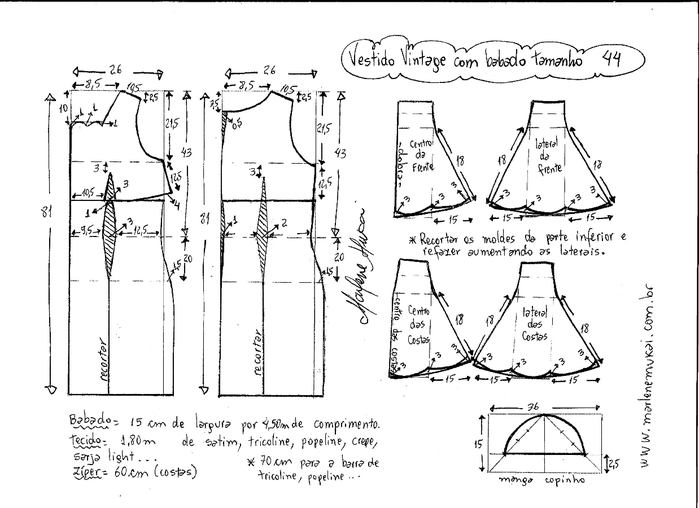 Vestido Vintage com babado tamanho 44
26
8,5
10,5
2,5
10
1
1
1
21,5
43
3
12,5
10,5
3
4
81
1
3
9,5
12,5
20
1,5
recortar
26
8,5
10,5
2,5
2,5
0,5
21,5
43
3
12,5
81
1
2
20
1,5
recortar
Marlene Mukai
Centro da Frente
dobra
18
3
3
15
lateral da Frente
18
18
3
3
15
* Recortar os moldes da parte inferior e
refazer aumentando as laterais.
Centro das Costas
centro das costas
18
3
3
15
lateral das Costas
18
18
3
3
15
Babado= 15 cm de largura por 4,50m de comprimento.
Tecido= 1,80m de satim, tricoline, popeline, crepe,
sarja light...
Zíper= 60cm (costas)
* 70cm para a barra de
tricoline, popeline...
36
15
2,5
manga copinho
www.marlenemukai.com.br